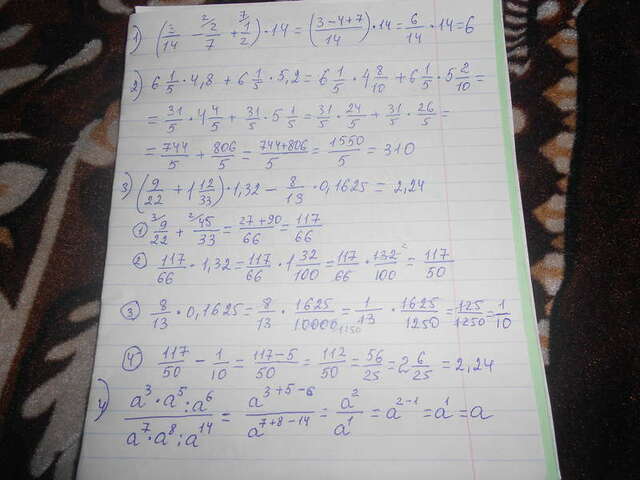 1) (3/14 - 2/7 + 1/2) · 14 = ((3-4+7)/14) · 14 = 6/14 · 14 = 6
2) 6 1/5 · 4,8 + 6 1/5 · 5,2 = 6 1/5 · 4 8/10 + 6 1/5 · 5 2/10 =
= 31/5 · 4 4/5 + 31/5 · 5 1/5 = 31/5 · 24/5 + 31/5 · 26/5 =
= 744/5 + 806/5 = (744+806)/5 = 1550/5 = 310
3) (9/22 + 1 12/33) · 1,32 - 8/13 · 0,1625 = 2,24
① 9/22 + 45/33 = (27+90)/66 = 117/66
② 117/66 · 1,32 = 117/66 · 1 32/100 = 117/66 · 132/100 = 117/50
③ 8/13 · 0,1625 = 8/13 · 1625/10000 = 1/13 · 1625/1250 = 125/1250 = 1/10
④ 117/50 - 1/10 = (117-5)/50 = 112/50 = 56/25 = 2 6/25 = 2,24
4) (a³ · a⁵ : a⁶)/(a⁷ · a⁸ : a¹⁴) = a³⁺⁵⁻⁶/a⁷⁺⁸⁻¹⁴ = a²/a¹ = a²⁻¹ = a¹ = a